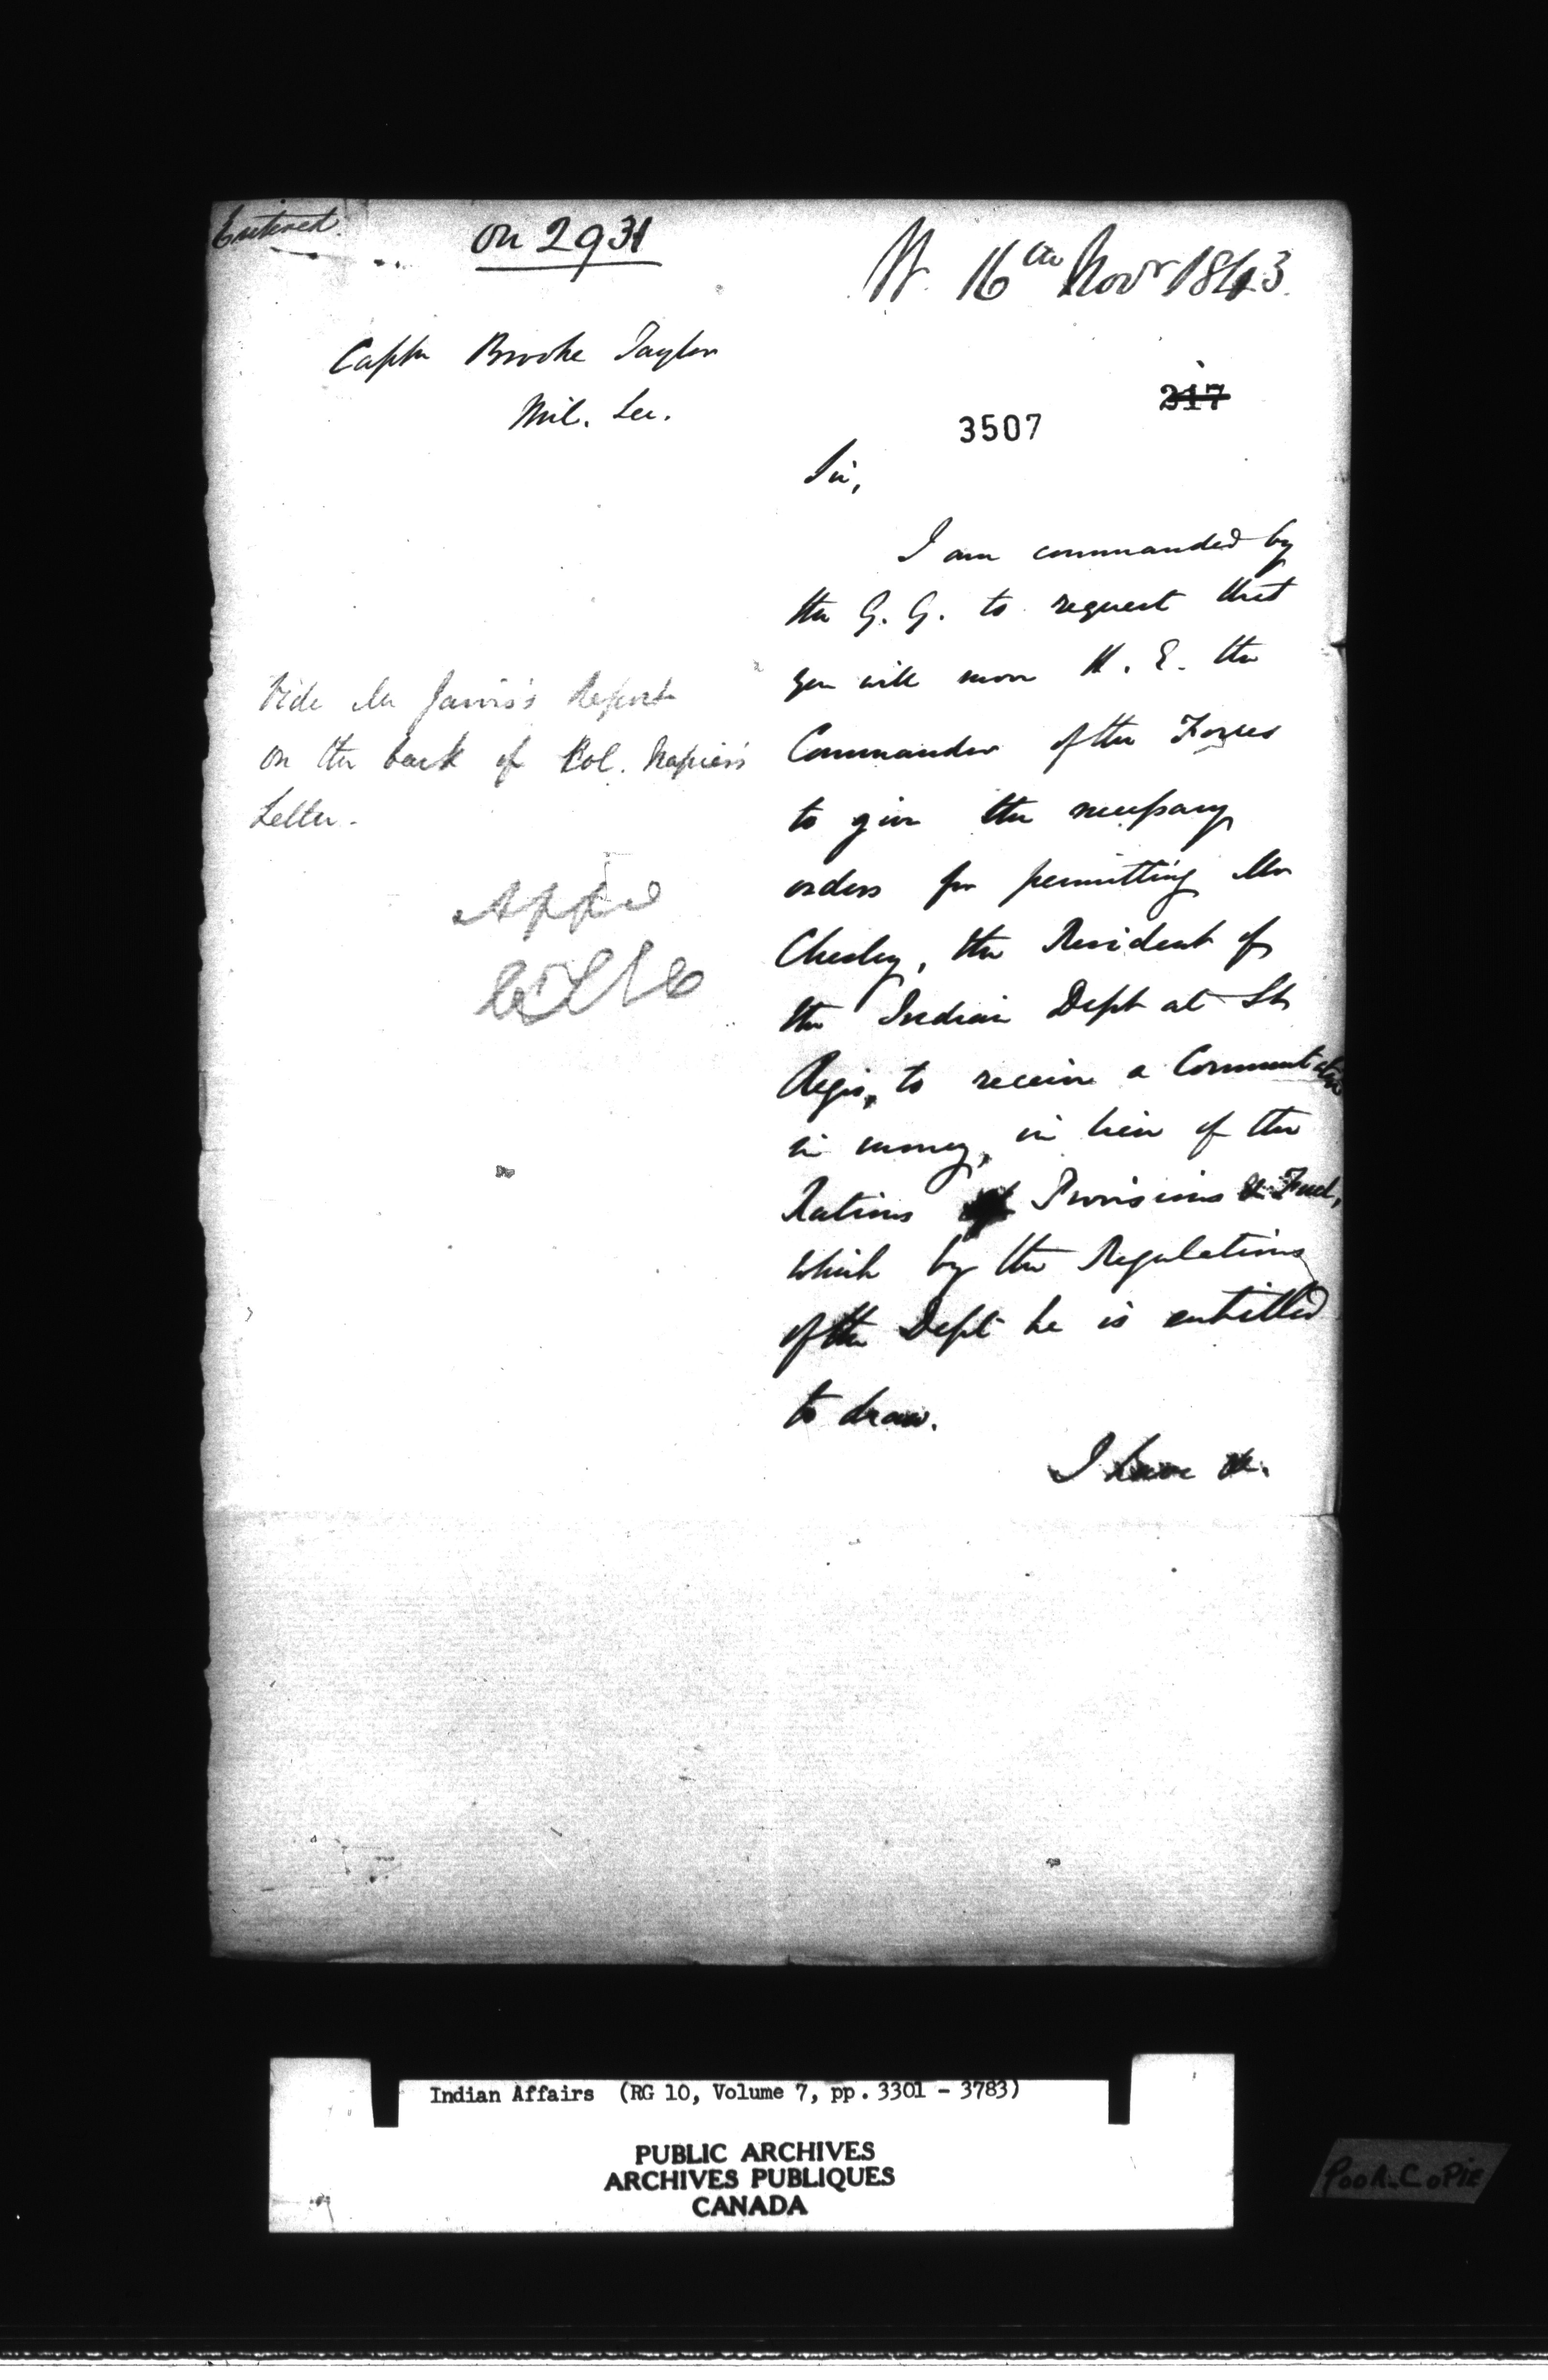 Entered.
on 2931
16th Novr 1843.
Captn Brooke Taylor
Mil. Sec.
217
3507
Sir,
I am commanded by
the G. G. to request that
you will move H. E. the
Commander of the Forces
to give the necessary
orders for permitting Mr
Chesley, the Resident of
the Indian Dept at St
Regis, to receive a Commutation
in money, in lieu of the
Rations of Provisions & Fuel,
which by the Regulations
of the Dept he is entitled
to draw.
I have &c.
Vide Mr Jarvis's Report
on the back of Col. Napier's
Letter.
Appd
Indian Affairs (RG 10, Volume 7, pp. 3301 - 3783)
PUBLIC ARCHIVES
ARCHIVES PUBLIQUES
CANADA
POOR COPIE